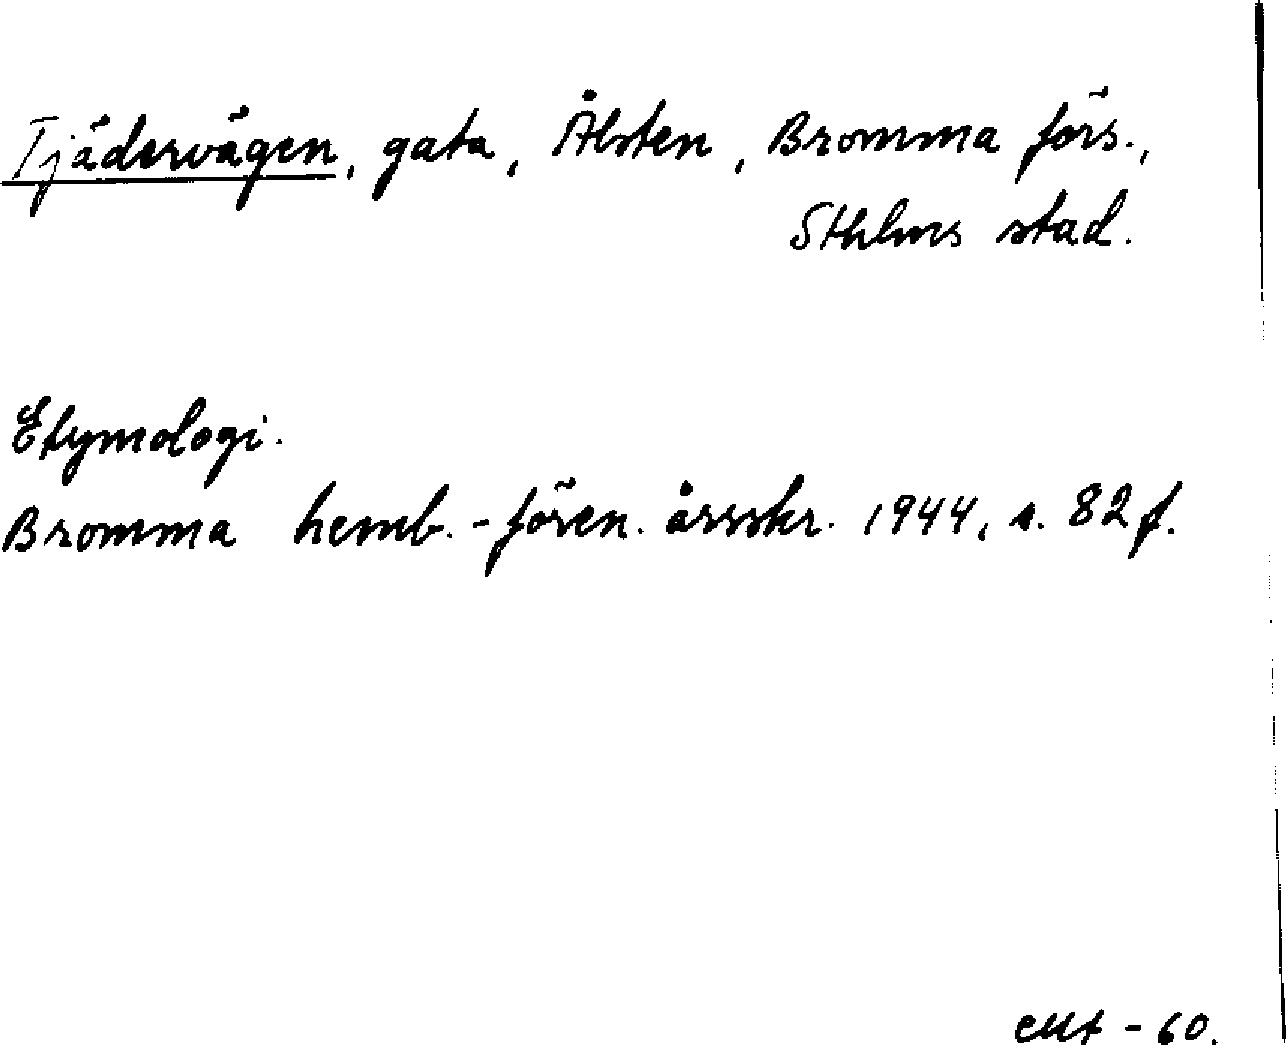 Tjädervägen, gata, Ålsten, Bromma förs.,
Sthlms stad.
Etymologi.
Bromma hemb.-fören. årsskr. 1944, s. 82 f.
- 60.